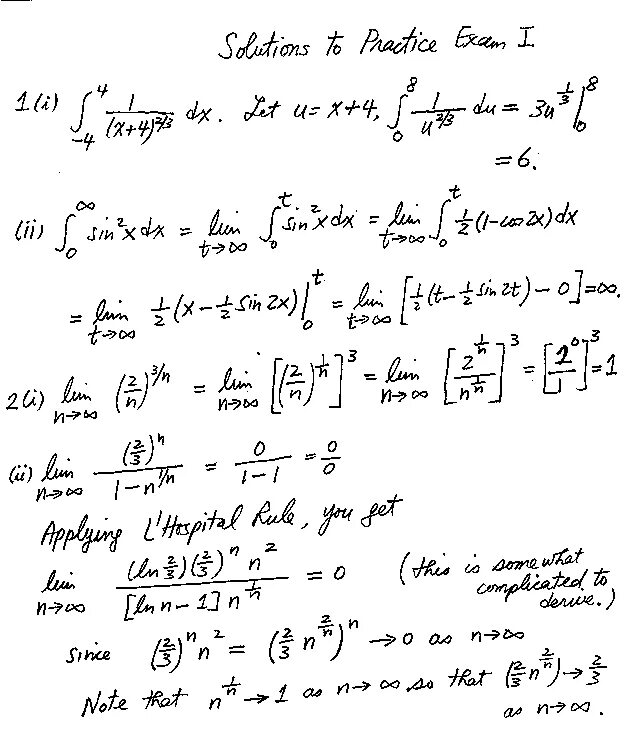 Solutions to Practice Exam I
1(i) ∫_{-4}^{4} 1/(x+4)^{2/3} dx. Let u = x+4, ∫_0^8 1/u^{2/3} du = 3u^{1/3} |_0^8
= 6.
(ii) ∫_0^∞ sin²x dx = lim_{t→∞} ∫_0^t sin²x dx = lim_{t→∞} ∫_0^t 1/2 (1-cos 2x) dx
= lim_{t→∞} 1/2 (x - 1/2 sin 2x) |_0^t = lim_{t→∞} [1/2 (t - 1/2 sin 2t) - 0] = ∞.
2(i) lim_{n→∞} (2/n)^{3/n} = lim_{n→∞} [(2/n)^{1/n}]^3 = lim_{n→∞} [2^{1/n} / n^{1/n}]^3 = [2^0 / 1]^3 = 1
(ii) lim_{n→∞} (2/3)^n / (1 - n^{1/n}) = 0/(1-1) = 0/0
Applying L'Hospital Rule, you get
lim_{n→∞} (ln 2/3)(2/3)^n n^2 / ([ln n - 1] n^{1/n}) = 0 (this is somewhat complicated to derive.)
since (2/3)^n n^2 = (2/3 n^{2/n})^n → 0 as n→∞
Note that n^{1/n} → 1 as n→∞ so that (2/3 n^{2/n}) → 2/3
as n→∞.